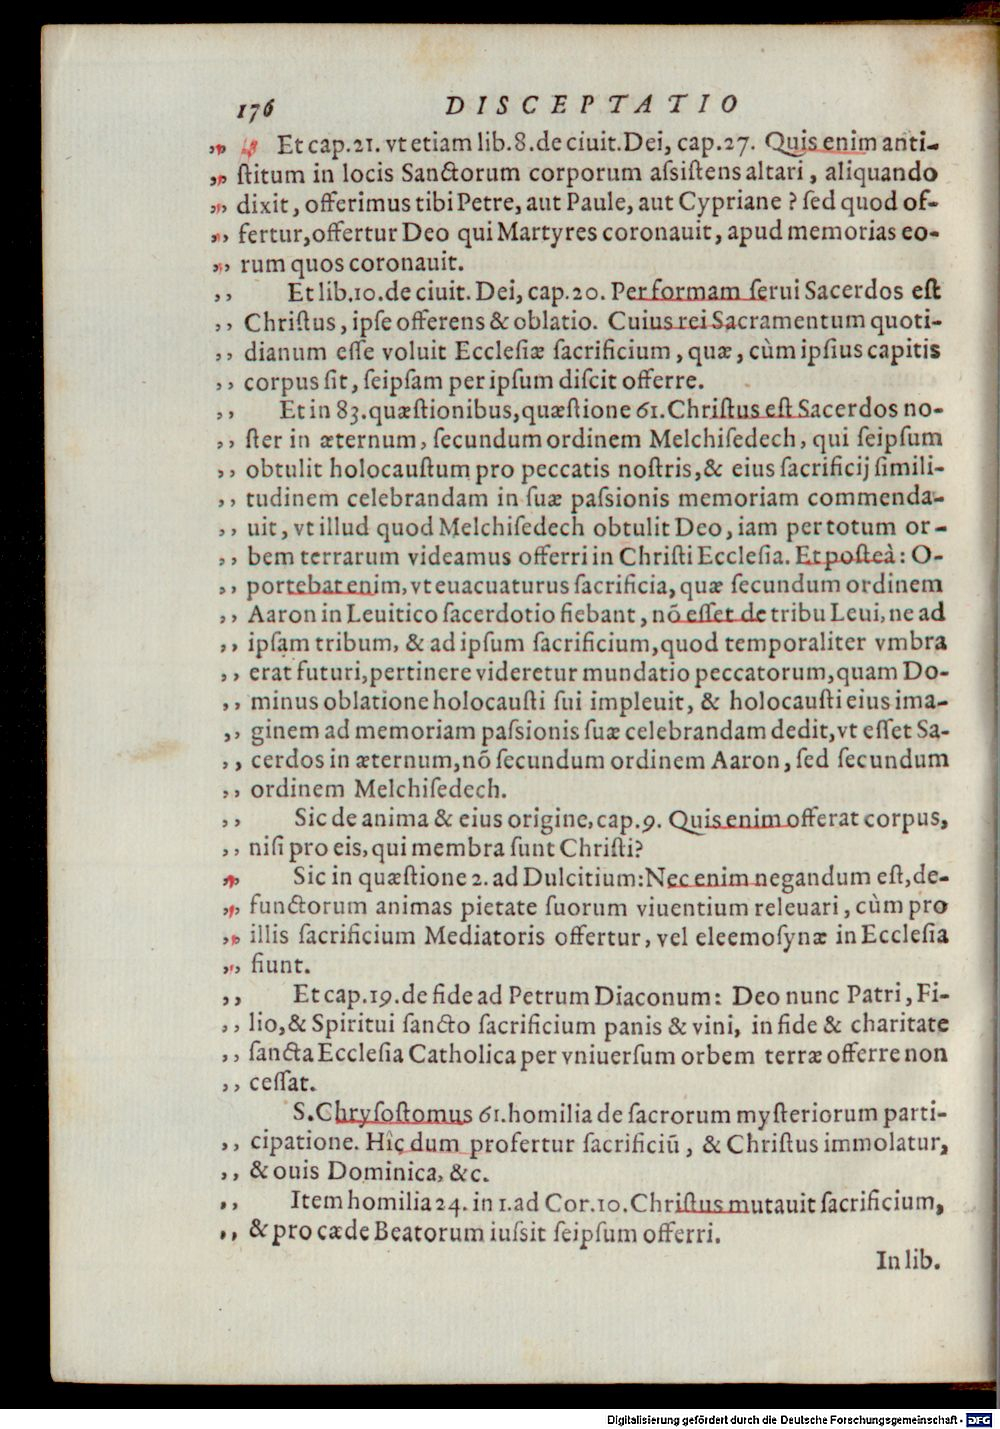 176 DISCEPTATIO
,, Et cap.21. vt etiam lib.8. de ciuit. Dei, cap.27. Quis enim anti-
,, ſtitum in locis Sanctorum corporum aſsiſtens altari, aliquando
,, dixit, offerimus tibi Petre, aut Paule, aut Cypriane? ſed quod of-
,, fertur, offertur Deo qui Martyres coronauit, apud memorias eo-
,, rum quos coronauit.
,, Et lib.10. de ciuit. Dei, cap.20. Per formam ſerui Sacerdos eſt
,, Chriſtus, ipſe offerens & oblatio. Cuius rei Sacramentum quoti-
,, dianum eſſe voluit Eccleſiæ ſacrificium, quæ, cùm ipſius capitis
,, corpus ſit, ſeipſam per ipſum diſcit offerre.
,, Et in 83. quæſtionibus, quæſtione 61. Chriſtus eſt Sacerdos no-
,, ſter in æternum, ſecundum ordinem Melchiſedech, qui ſeipſum
,, obtulit holocauſtum pro peccatis noſtris, & eius ſacrificij ſimili-
,, tudinem celebrandam in ſuæ paſsionis memoriam commenda-
,, uit, vt illud quod Melchiſedech obtulit Deo, iam per totum or-
,, bem terrarum videamus offerri in Chriſti Eccleſia. Et poſteà: O-
,, portebat enim, vt euacuaturus ſacrificia, quæ ſecundum ordinem
,, Aaron in Leuitico ſacerdotio fiebant, nõ eſſet de tribu Leui, ne ad
,, ipſam tribum, & ad ipſum ſacrificium, quod temporaliter vmbra
,, erat futuri, pertinere videretur mundatio peccatorum, quam Do-
,, minus oblatione holocauſti ſui impleuit, & holocauſti eius ima-
,, ginem ad memoriam paſsionis ſuæ celebrandam dedit, vt eſſet Sa-
,, cerdos in æternum, nõ ſecundum ordinem Aaron, ſed ſecundum
,, ordinem Melchiſedech.
,, Sic de anima & eius origine, cap.9. Quis enim offerat corpus,
,, niſi pro eis, qui membra ſunt Chriſti?
,, Sic in quæſtione 2. ad Dulcitium: Nec enim negandum eſt, de-
,, functorum animas pietate ſuorum viuentium releuari, cùm pro
,, illis ſacrificium Mediatoris offertur, vel eleemoſynæ in Eccleſia
,, fiunt.
,, Et cap.19. de fide ad Petrum Diaconum: Deo nunc Patri, Fi-
,, lio, & Spiritui ſancto ſacrificium panis & vini, in fide & charitate
,, ſancta Eccleſia Catholica per vniuerſum orbem terræ offerre non
,, ceſſat.
S. Chryſoſtomus 61. homilia de ſacrorum myſteriorum parti-
,, cipatione. Hîc dum profertur ſacrificiũ, & Chriſtus immolatur,
,, & ouis Dominica, &c.
,, Item homilia 24. in 1. ad Cor.10. Chriſtus mutauit ſacrificium,
,, & pro cæde Beatorum iuſsit ſeipſum offerri.
In lib.
Digitalisierung gefördert durch die Deutsche Forschungsgemeinschaft - DFG